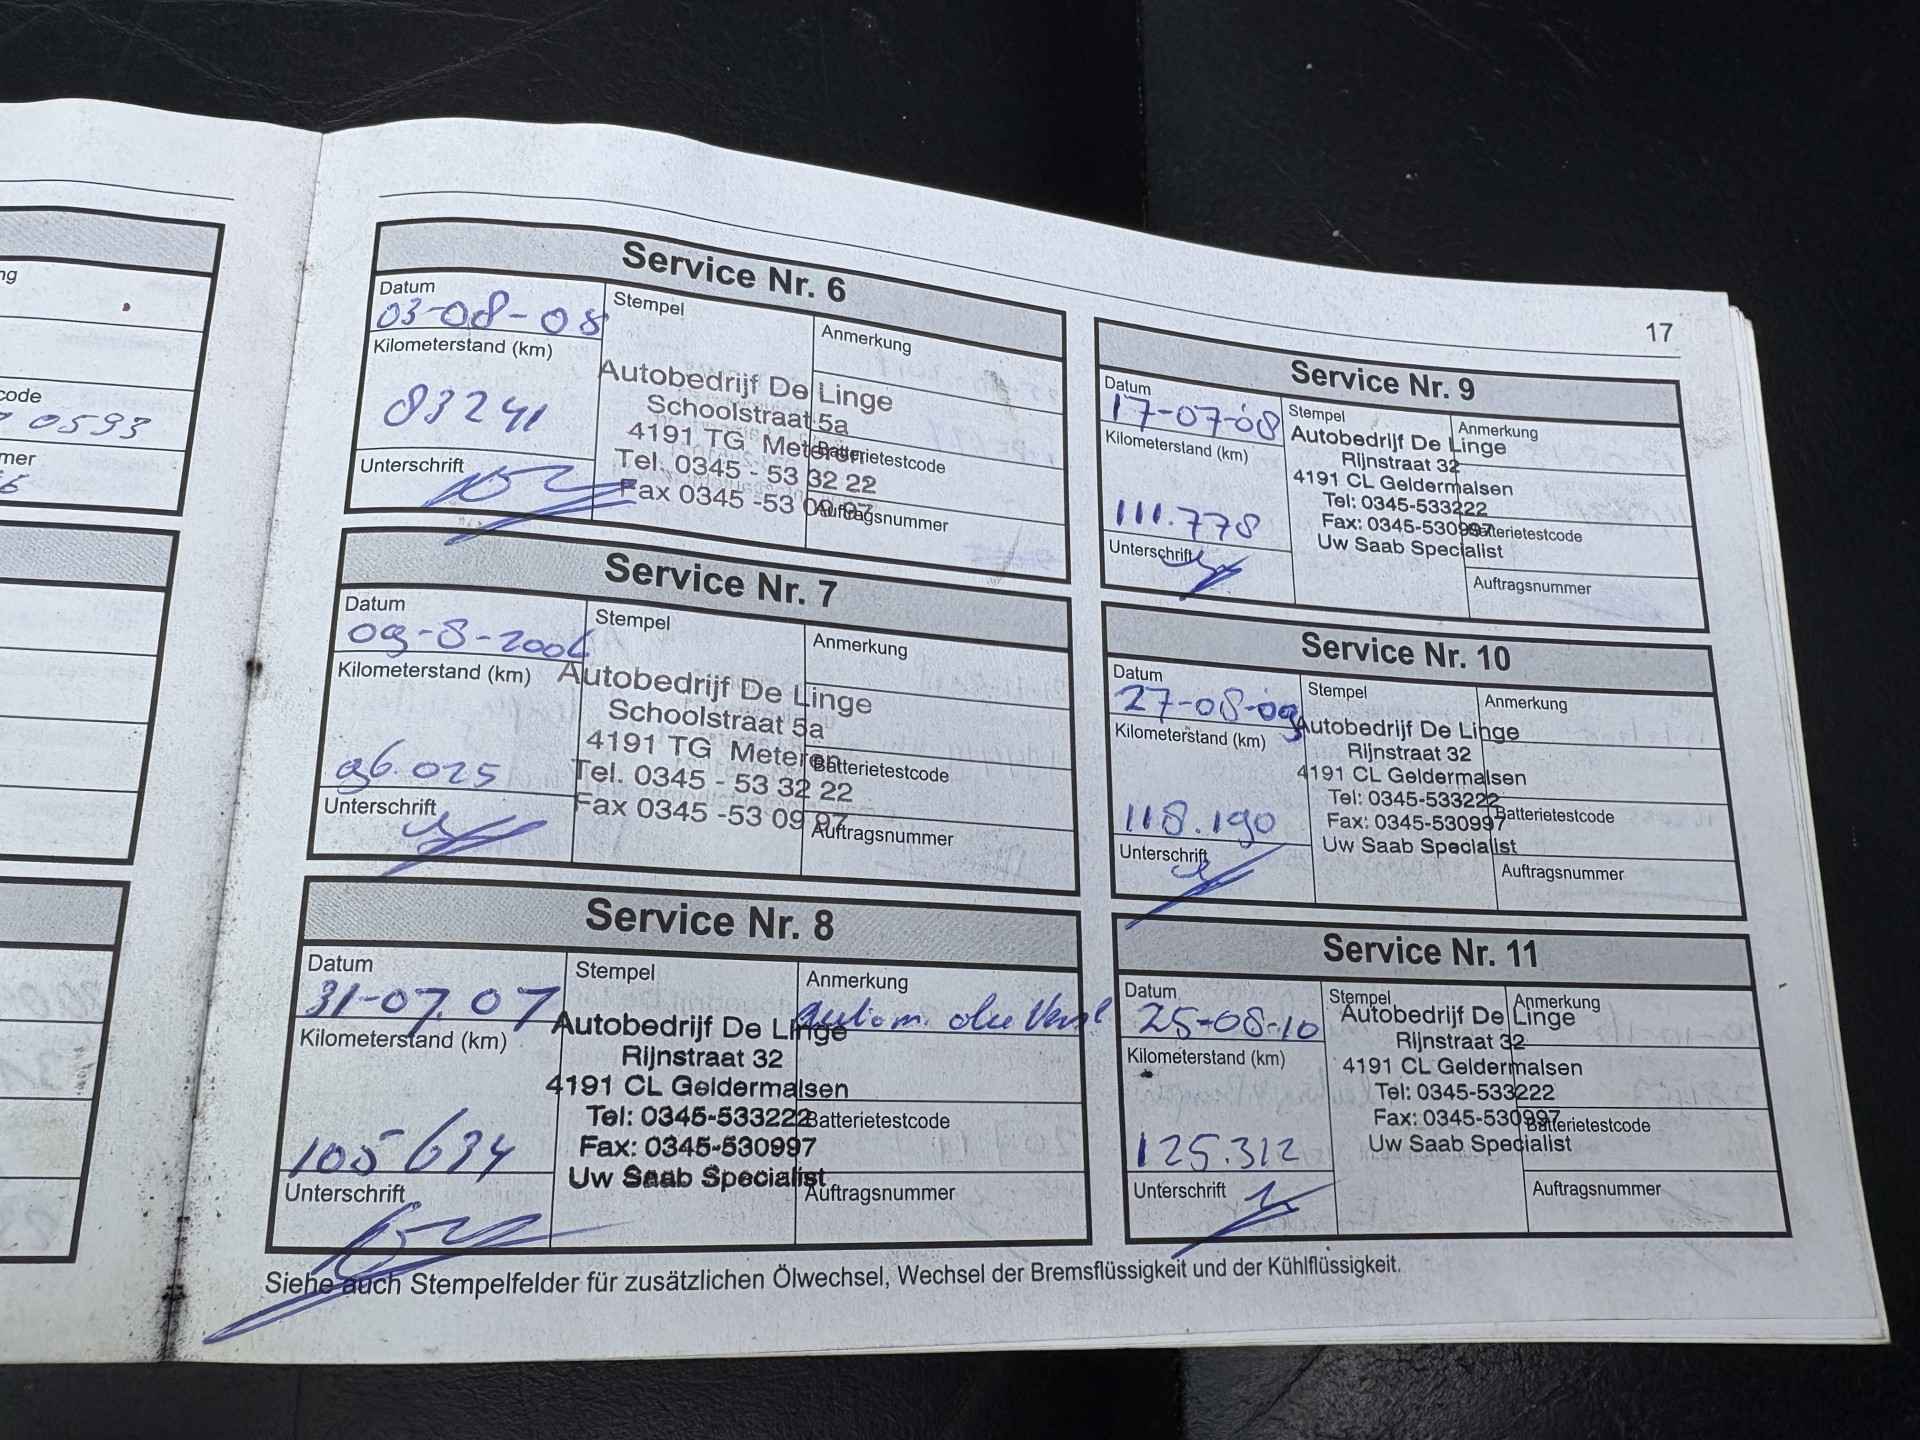 ng
code
0593
mer
17
Service Nr. 6
Datum
03-08-08
Kilometerstand (km)
83241
Unterschrift
Stempel
Autobedrijf De Linge
Schoolstraat 5a
4191 TG Meteren
Tel. 0345 - 53 32 22
Fax 0345 -53 09 97
Anmerkung
Batterietestcode
Auftragsnummer
Service Nr. 7
Datum
09-8-2006
Kilometerstand (km)
96.025
Unterschrift
Stempel
Autobedrijf De Linge
Schoolstraat 5a
4191 TG Meteren
Tel. 0345 - 53 32 22
Fax 0345 -53 09 97
Anmerkung
Batterietestcode
Auftragsnummer
Service Nr. 8
Datum
31-07.07
Kilometerstand (km)
105634
Unterschrift
Stempel
Autobedrijf De Linge
Rijnstraat 32
4191 CL Geldermalsen
Tel: 0345-533222
Fax: 0345-530997
Uw Saab Specialist
Anmerkung
Autom. olie
Batterietestcode
Auftragsnummer
Service Nr. 9
Datum
17-07-08
Kilometerstand (km)
111.778
Unterschrift
Stempel
Autobedrijf De Linge
Rijnstraat 32
4191 CL Geldermalsen
Tel: 0345-533222
Fax: 0345-530997
Uw Saab Specialist
Anmerkung
Batterietestcode
Auftragsnummer
Service Nr. 10
Datum
27-08-09
Kilometerstand (km)
118.190
Unterschrift
Stempel
Autobedrijf De Linge
Rijnstraat 32
4191 CL Geldermalsen
Tel: 0345-533222
Fax: 0345-530997
Uw Saab Specialist
Anmerkung
Batterietestcode
Auftragsnummer
Service Nr. 11
Datum
25-08-10
Kilometerstand (km)
125.312
Unterschrift
Stempel
Autobedrijf De Linge
Rijnstraat 32
4191 CL Geldermalsen
Tel: 0345-533222
Fax: 0345-530997
Uw Saab Specialist
Anmerkung
Batterietestcode
Auftragsnummer
Siehe auch Stempelfelder für zusätzlichen Ölwechsel, Wechsel der Bremsflüssigkeit und der Kühlflüssigkeit.